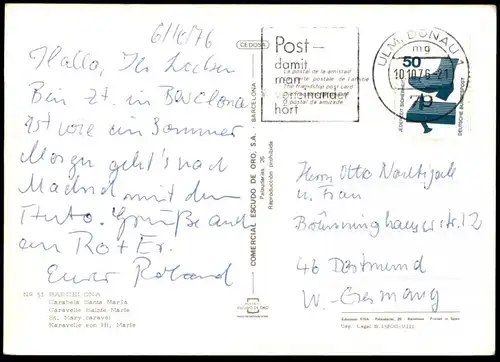 6/10/76
Hallo, Ihr Lieben
Bin zt. in Barcelona
Ist wie im Sommer
Morgen geht's nach
Madrid mit dem
Auto. Grüße auch
an
Euer Roland
Nº 51 BARCELONA
Carabela Santa María
Caravelle Sainte Marie
St. Mary caravel
Karavelle von Hl. Marie
GEDONA
BARCELONA
COMERCIAL ESCUDO DE ORO, S.A.
Palaudarias, 26
Reproducción prohibida
ESCUDO DE ORO
La postal de la amistad
postale de l'amitié
The friendship post card
da amizade
Post –
damit
man
voneinander
hört
ULM, DONAU 1
mg
10.10.76-21
79
50
JEDERZEIT SICHERHEIT
DEUTSCHE BUNDESPOST
Herrn Otto Nachtigall
u. Frau
12
46 Dortmund
W-Germany
Palaudarias, 26 - Barcelona
Dep. Legal B.